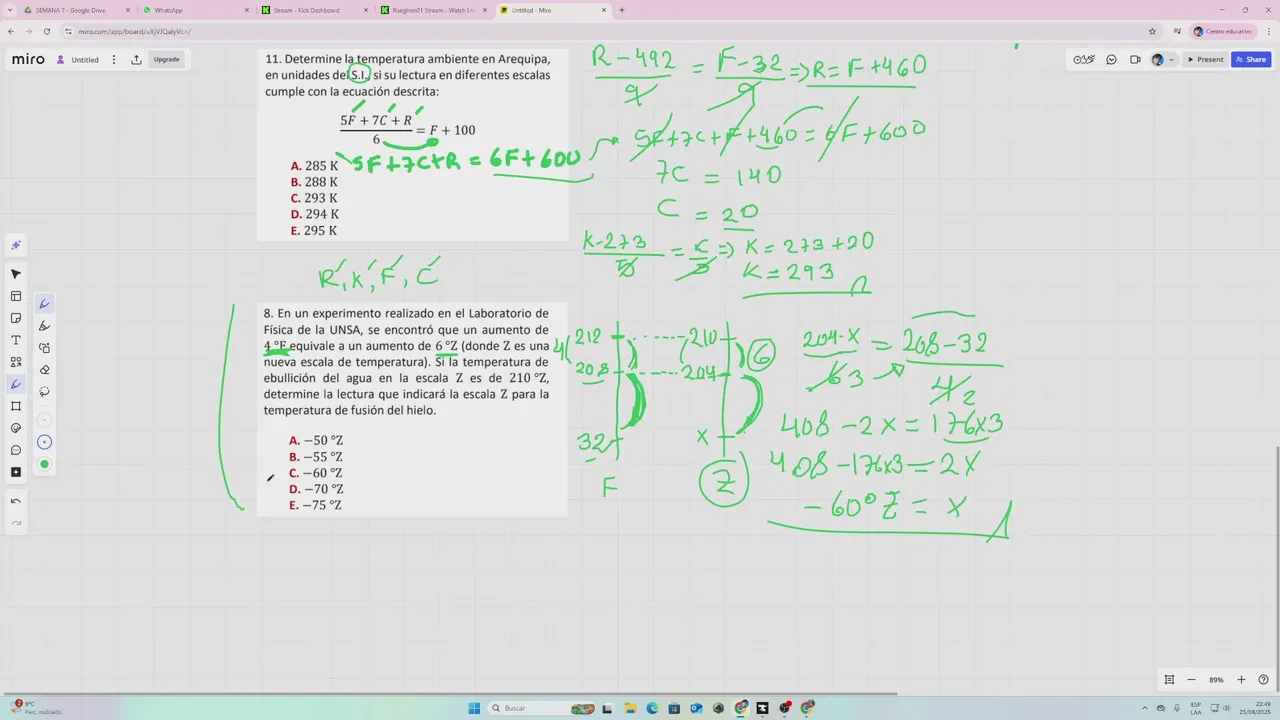 SEMANA T - Google Drive
WhatsApp
Stream - Kick Dashboard
Raeghon01 Stream - Watch Liv
Untitled - Miro
miro.com/app/board/uXjVJQalyVc=/
Centro educativo
miro
Untitled
Upgrade
Present
Share
11. Determine la temperatura ambiente en Arequipa,
en unidades del S.I. si su lectura en diferentes escalas
cumple con la ecuación descrita:
5F + 7C + R
6
= F + 100
5F+7C+R = 6F+600
A. 285 K
B. 288 K
C. 293 K
D. 294 K
E. 295 K
R-492
9
= F-32
9
⇒ R = F+460
5F+7C+F+460 = 6F+600
7C = 140
C = 20
K-273
5
= C
5
⇒ K = 273+20
K = 293
R, K, F, C
8. En un experimento realizado en el Laboratorio de
Física de la UNSA, se encontró que un aumento de
4 °F equivale a un aumento de 6 °Z (donde Z es una
nueva escala de temperatura). Si la temperatura de
ebullición del agua en la escala Z es de 210 °Z,
determine la lectura que indicará la escala Z para la
temperatura de fusión del hielo.
A. −50 °Z
B. −55 °Z
C. −60 °Z
D. −70 °Z
E. −75 °Z
212
210
4
208
204
6
32
x
F
Z
204-x
6 3
= 208-32
4 2
408-2x = 176x3
408-176x3 = 2x
-60°Z = x
89%
9°C
Parc. nublado
Buscar
ESP
LAA
22:49
25/08/2025